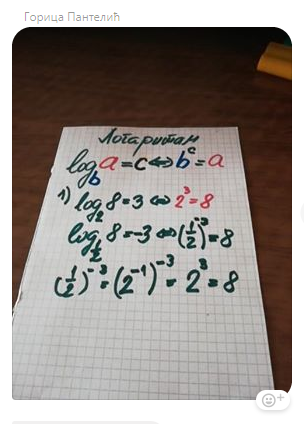 Горица Пантелић
Логаритам
log_b a = c ⇔ b^c = a
1) log_2 8 = 3 ⇔ 2^3 = 8
log_{1/2} 8 = -3 ⇔ (1/2)^{-3} = 8
(1/2)^{-3} = (2^{-1})^{-3} = 2^3 = 8